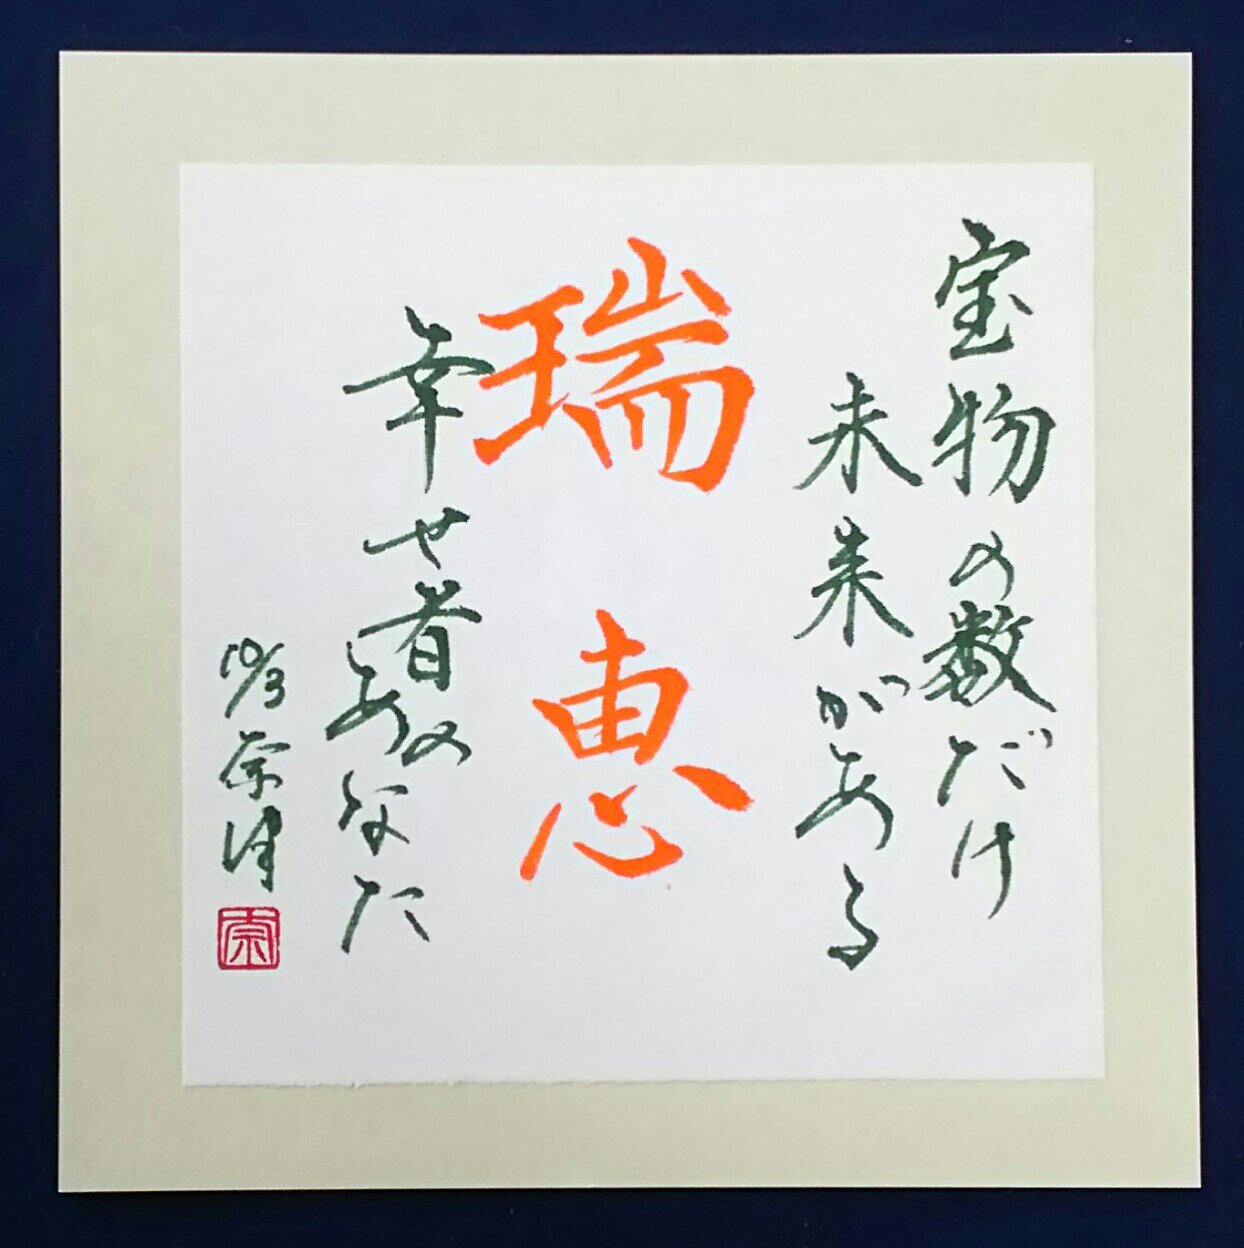 宝物の数だけ
未来がある
瑞恵
幸せ者の
あなた
10/3 奈津
奈